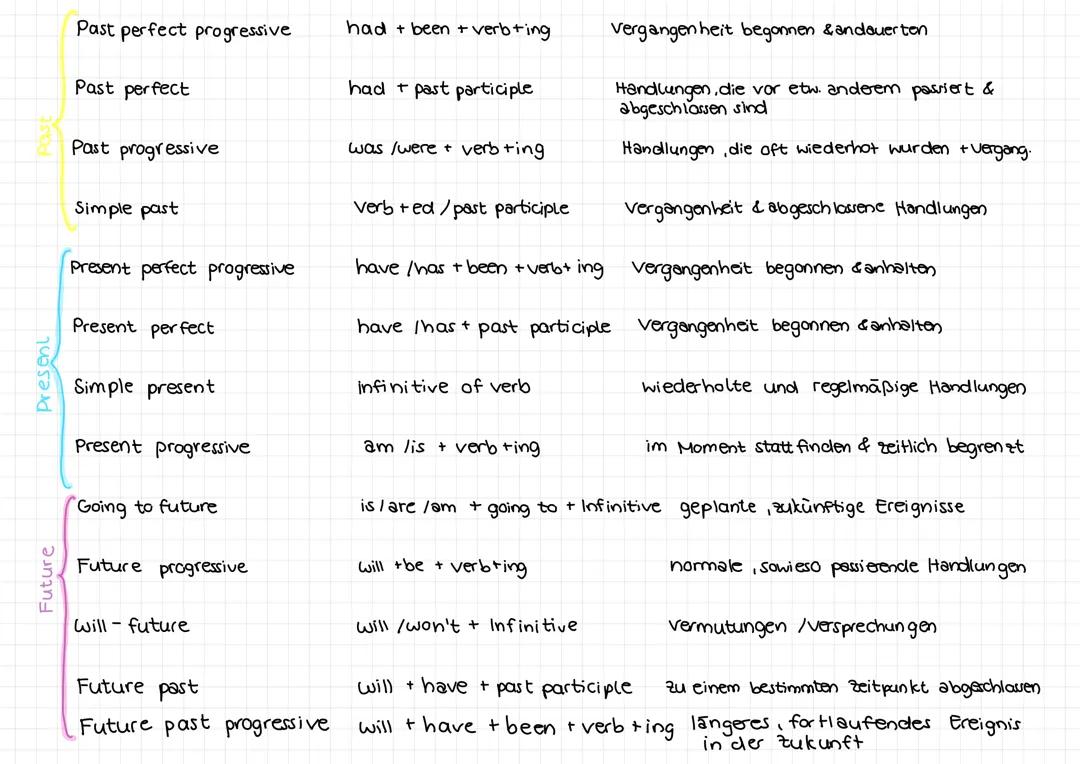 Past
Past perfect progressive had + been + verb+ing Vergangenheit begonnen & andauerten
Past perfect had + past participle Handlungen, die vor etw. anderem passiert &
abgeschlossen sind
Past progressive was /were + verb +ing Handlungen, die oft wiederhot wurden + Vergang.
Simple past Verb + ed / past participle Vergangenheit & abgeschlossene Handlungen
Present
Present perfect progressive have /has + been + verb+ ing Vergangenheit begonnen & anhalten
Present perfect have /has + past participle Vergangenheit begonnen & anhalten
Simple present infinitive of verb wiederholte und regelmäßige Handlungen
Present progressive am /is + verb +ing im Moment stattfinden & zeitlich begrenzt
Future
Going to future is / are /am + going to + Infinitive geplante, zukünftige Ereignisse
Future progressive will +be + verb+ing normale, sowieso passierende Handlungen
Will - future will /won't + Infinitive Vermutungen /Versprechungen
Future past will + have + past participle zu einem bestimmten Zeitpunkt abgeschlossen
Future past progressive will + have + been + verb +ing längeres, fortlaufendes Ereignis
in der Zukunft